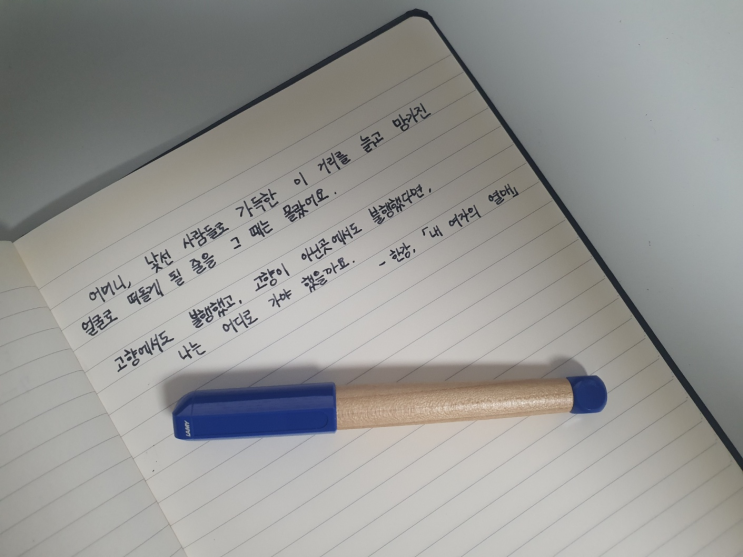 어머니, 낯선 사람들로 가득한 이 거리를 늙고 망가진
얼굴로 떠돌게 될 줄을 그 때는 몰랐어요.
고향에서도 불행했고, 고향이 아닌곳에서도 불행했다면,
나는 어디로 가야 했을까요. - 한강, 「내 여자의 열매」
LAMY